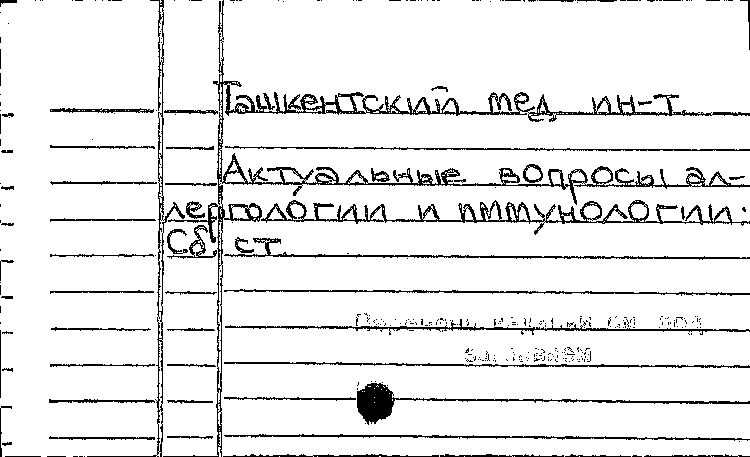 Ташкентский мед. ин-т.
Актуальные вопросы ал-
лергологии и иммунологии:
Сб. ст.
Перечень изданий см под
заглавием